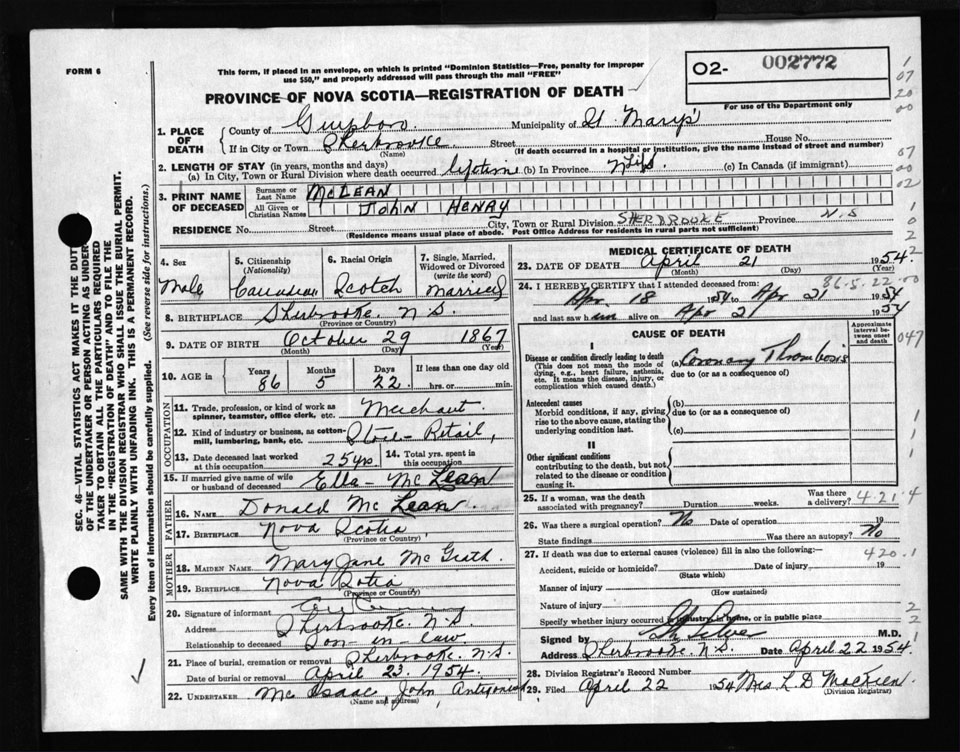 FORM 6
This form, if placed in an envelope, on which is printed "Dominion Statistics—Free, penalty for improper
use $50," and properly addressed will pass through the mail "FREE"
PROVINCE OF NOVA SCOTIA—REGISTRATION OF DEATH
O2- 002772
For use of the Department only
1. PLACE OF DEATH
County of Guysboro Municipality of St Mary's
If in City or Town Sherbrooke Street House No.
(Name) (If death occurred in a hospital or institution, give the name instead of street and number)
2. LENGTH OF STAY (in years, months and days)
(a) In City, Town or Rural Division where death occurred lifetime (b) In Province (c) In Canada (if immigrant)
3. PRINT NAME OF DECEASED
Surname or Last Name McLEAN
All Given or Christian Names JOHN HENRY
RESIDENCE No. Street City, Town or Rural Division SHERBROOKE Province N.S
(Residence means usual place of abode. Post Office Address for residents in rural parts not sufficient)
4. Sex Male
5. Citizenship (Nationality) Canadian
6. Racial Origin Scotch
7. Single, Married, Widowed or Divorced (write the word) Married
8. BIRTHPLACE Sherbrooke. N.S.
(Province or Country)
9. DATE OF BIRTH October 29 1867
(Month) (Day) (Year)
10. AGE in Years 86 Months 5 Days 22 If less than one day old hrs. or min.
OCCUPATION
11. Trade, profession, or kind of work as spinner, teamster, office clerk, etc. Merchant.
12. Kind of industry or business, as cotton-mill, lumbering, bank, etc. Store - Retail,
13. Date deceased last worked at this occupation 25 yrs
14. Total yrs. spent in this occupation
15. If married give name of wife or husband of deceased Ella - McLean
FATHER
16. Name Donald McLean.
17. Birthplace Nova Scotia
(Province or Country)
MOTHER
18. MAIDEN NAME Mary Jane McGrath
19. Birthplace Nova Scotia
(Province or Country)
20. Signature of informant
Address Sherbrooke. N.S.
Relationship to deceased Son-in-law
21. Place of burial, cremation or removal Sherbrooke. N.S.
Date of burial or removal April 23. 1954.
22. UNDERTAKER McIsaac, John Antigonish
(Name and address)
MEDICAL CERTIFICATE OF DEATH
23. DATE OF DEATH April 21 1954.
(Month) (Day) (Year)
24. I HEREBY CERTIFY that I attended deceased from:
86.5.22.00
Apr. 18 1954 to Apr 21 1954
and last saw him alive on Apr 21 1954
CAUSE OF DEATH
Approximate interval between onset and death
I
Disease or condition directly leading to death
(This does not mean the mode of dying, e.g., heart failure, asthenia, etc. It means the disease, injury, or complication which caused death.)
(a) Coronary Thrombosis
due to (or as a consequence of)
Antecedent causes
Morbid conditions, if any, giving rise to the above cause, stating the underlying condition last.
(b)
due to (or as a consequence of)
(c)
II
Other significant conditions
contributing to the death, but not related to the disease or condition causing it.
25. If a woman, was the death associated with pregnancy? Duration weeks. Was there a delivery?
4.21.4
26. Was there a surgical operation? No Date of operation 19
State findings Was there an autopsy? No
27. If death was due to external causes (violence) fill in also the following:—
420.1
Accident, suicide or homicide? Date of injury 19
(State which)
Manner of injury
(How sustained)
Nature of injury
Specify whether injury occurred in industry, in home, or in public place
Signed by M.D.
Address Sherbrooke. N.S. Date April 22 1954.
28. Division Registrar's Record Number
29. Filed April 22 1954 Mrs. L D MacKeen.
(Division Registrar)
SEC. 46—VITAL STATISTICS ACT MAKES IT THE DUTY
OF THE UNDERTAKER OR PERSON ACTING AS UNDER-
TAKER TO OBTAIN ALL THE PARTICULARS REQUIRED
IN THE "REGISTRATION OF DEATH" AND TO FILE THE
SAME WITH THE DIVISION REGISTRAR WHO SHALL ISSUE THE BURIAL PERMIT.
WRITE PLAINLY WITH UNFADING INK. THIS IS A PERMANENT RECORD.
Every item of information should be carefully supplied. (See reverse side for instructions.)
1
07
20
00
07
00
02
1
0
2
2
047
1
1
1
2
2
1